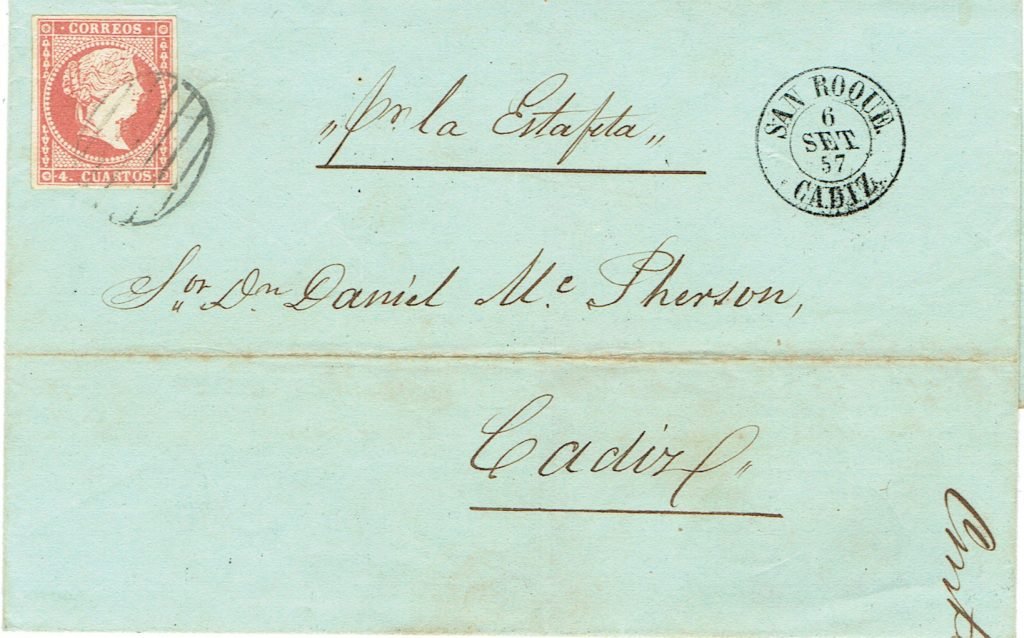 CORREOS
4. CUARTOS
„Pr. la Estafeta„
SAN ROQUE.
6
SET
57
CADIZ.
Sor. Dn. Daniel Mc. Pherson,
Cadiz„